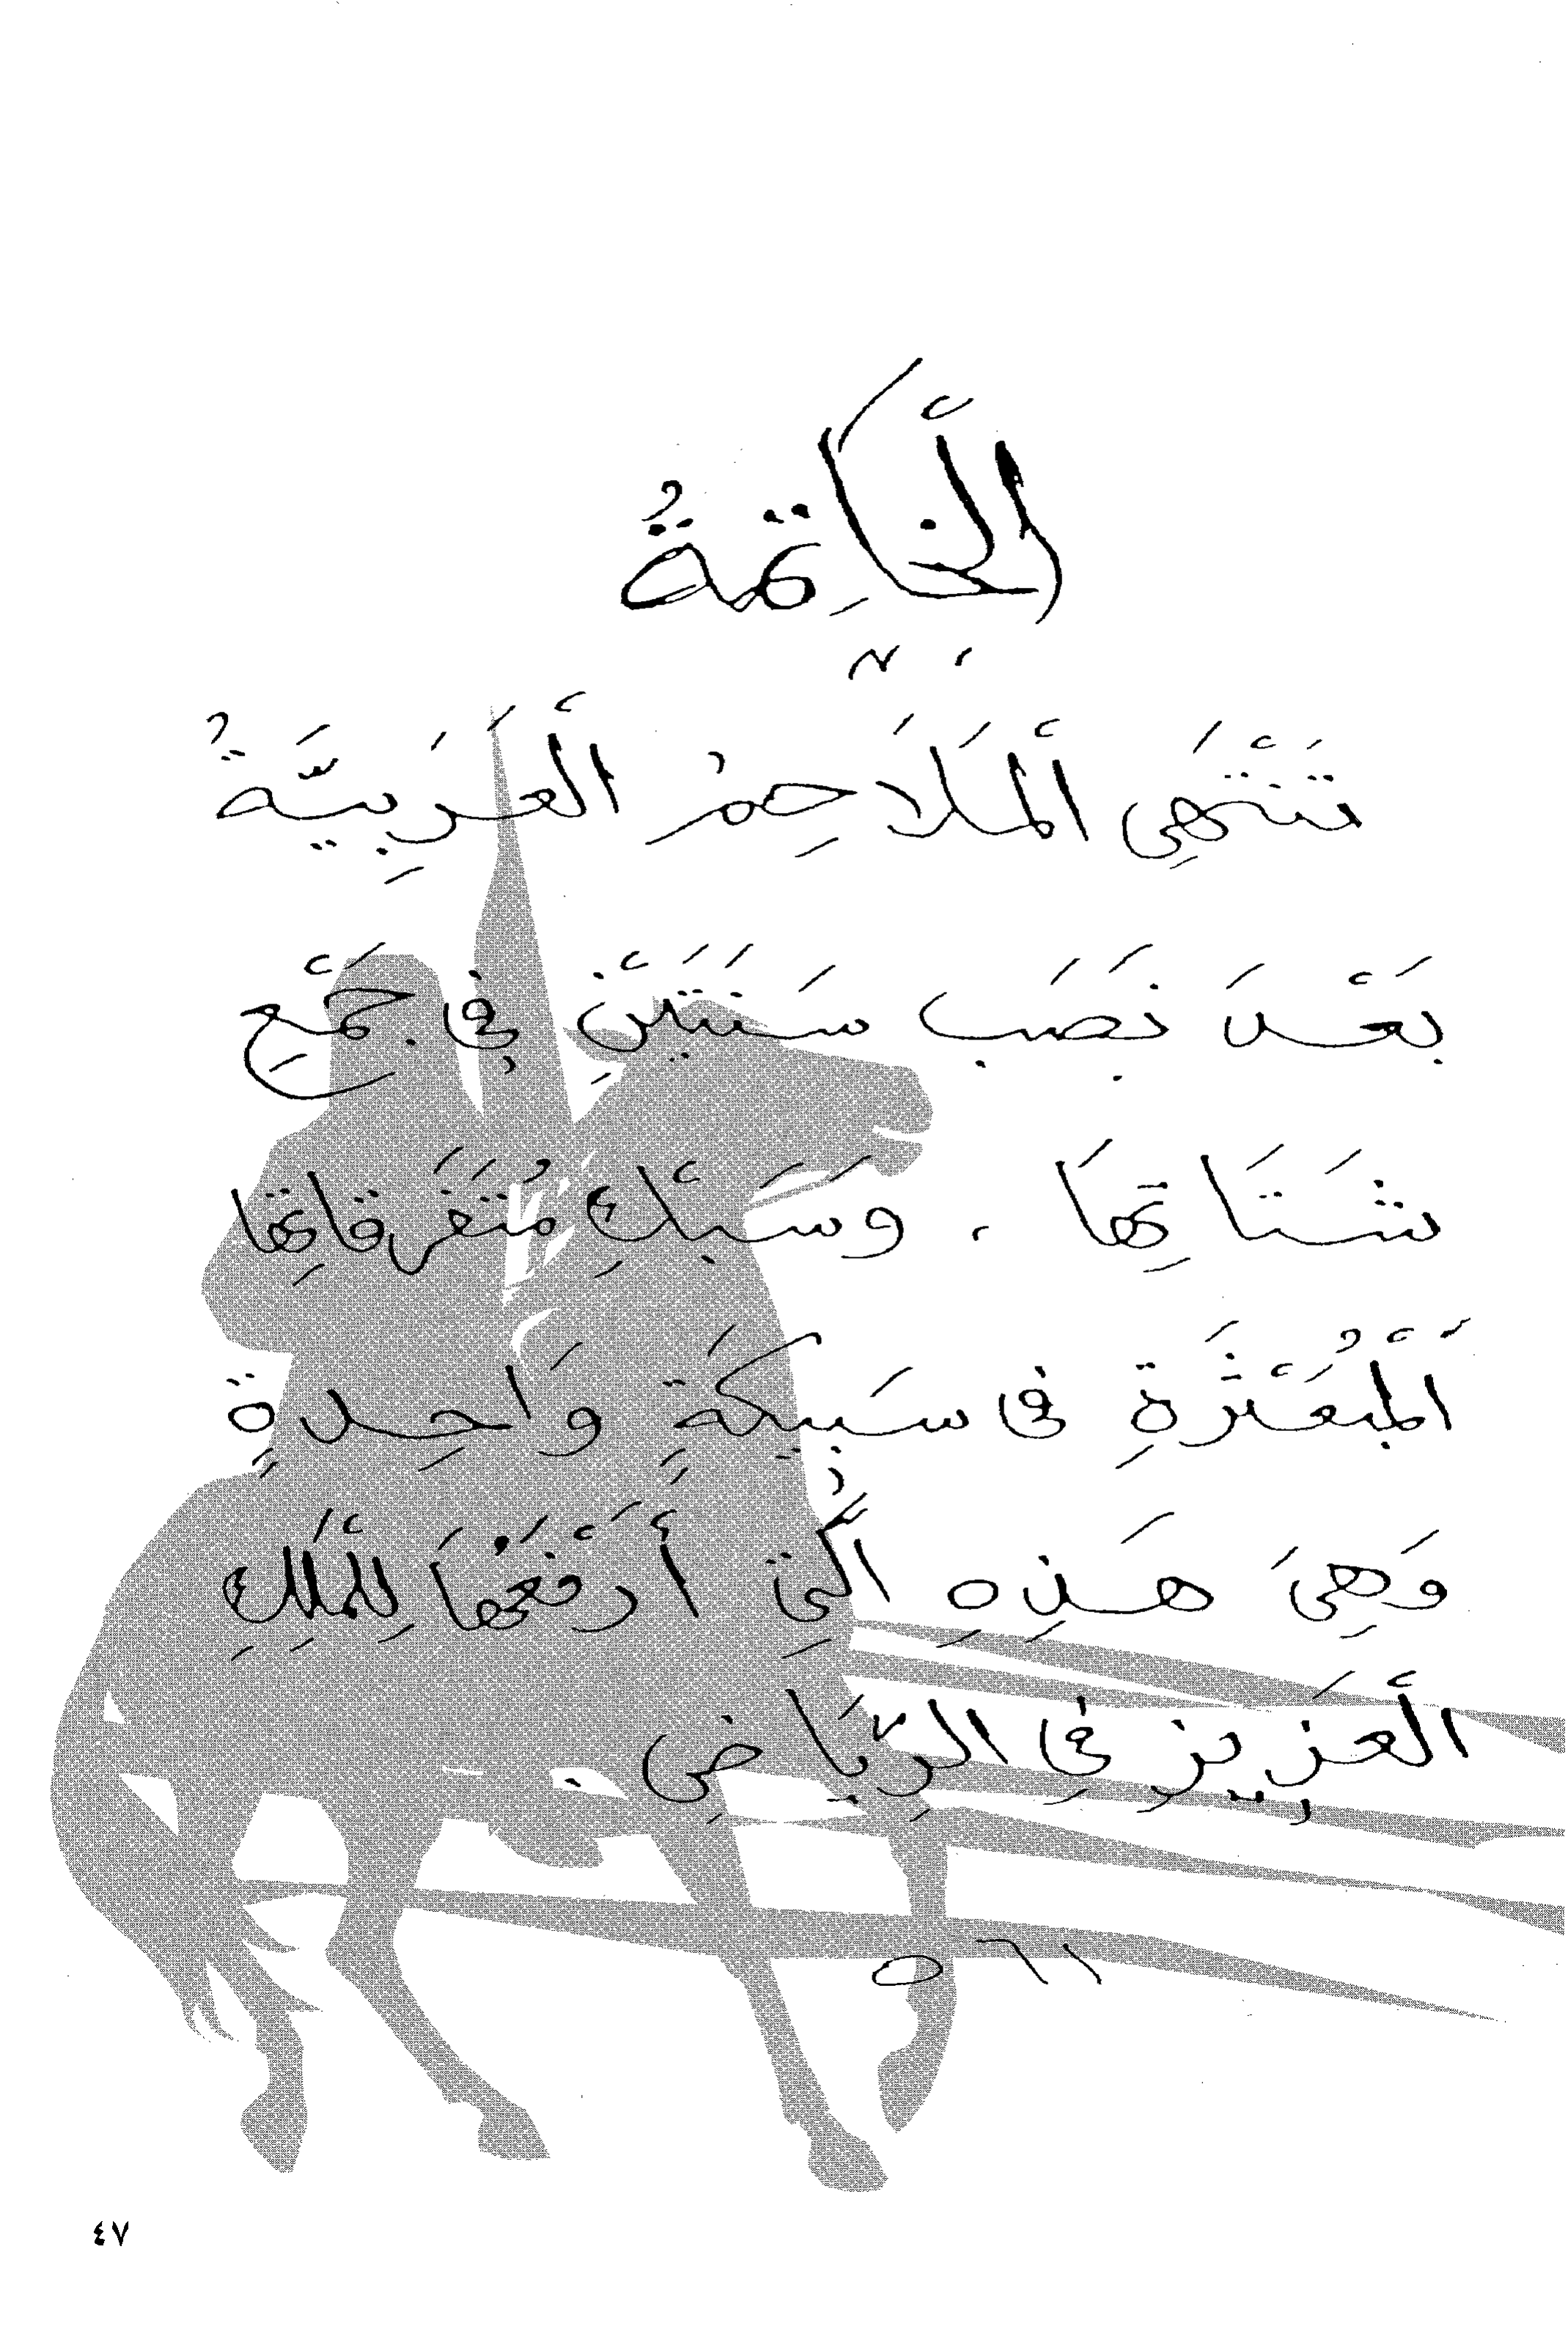 الْخَاتِمَةُ
تَنْتَهِى الْمَلَاحِمُ الْعَرَبِيَّةُ
بَعْدَ نَصَبِ سَنَتَيْنِ فِي جَمْعِ
شَتَاتِهَا ، وَسَبْكِ مُتَفَرِقَاتِهَا
الْمُبَعْثَرَةِ فى سَبِيكَةٍ وَاحِدةٍ
وَهِىَ هَذِهِ الَّتِى أَرْفَعُهَا لِلْمَلِكِ
الْعَزِيزِ فِي الرِّيَاضِ .
١٦٥
٤٧